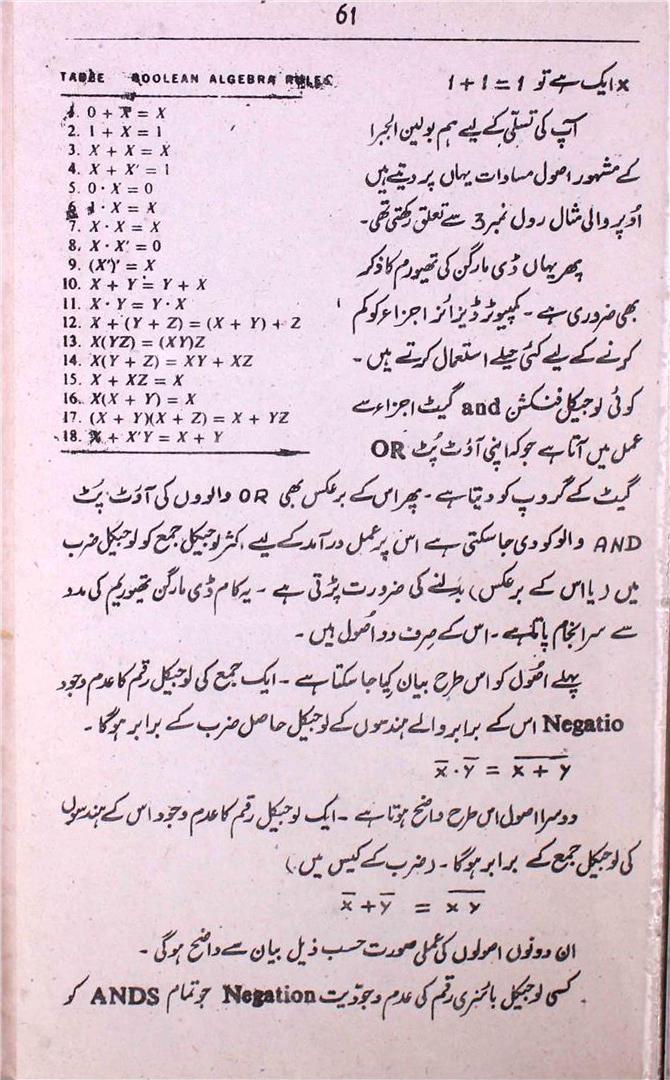 61
x ایک ہے تو 1 = 1 + 1
آپ کی تسلّی کے لیے ہم بولین الجبرا
کے مشہور اصول مساوات یہاں پر دیتے ہیں
اُوپر والی مثال رول نمبر 3 سے تعلق رکھتی تھی۔
پھر یہاں ڈی مارگن کی تھیورم کا ذکر
بھی ضروری ہے ۔ کمپیوٹر ڈیزائنر اجزاء کو کم
کرنے کے لیے کئی حیلے استعمال کرتے ہیں ۔
کوئی لوجیکل فنکشن and گیٹ اجزاء سے
عمل میں آتا ہے جو کہ اپنی آؤٹ پُٹ OR
TABLE BOOLEAN ALGEBRA RULES
1. 0 + X = X
2. 1 + X = 1
3. X + X = X
4. X + X' = 1
5. 0 · X = 0
6. 1 · X = X
7. X · X = X
8. X · X' = 0
9. (X')' = X
10. X + Y = Y + X
11. X · Y = Y · X
12. X + (Y + Z) = (X + Y) + Z
13. X(YZ) = (XY)Z
14. X(Y + Z) = XY + XZ
15. X + XZ = X
16. X(X + Y) = X
17. (X + Y)(X + Z) = X + YZ
18. X + X'Y = X + Y
گیٹ کے گروپ کو دیتا ہے ۔ پھر اس کے برعکس بھی OR والوں کی آؤٹ پُٹ
AND والو کو دی جا سکتی ہے اس پر عمل درآمد کے لیے اکثر لوجیکل جمع کو لوجیکل ضرب
میں (یا اس کے برعکس) بدلنے کی ضرورت پڑتی ہے ۔ یہ کام ڈی مارگن تھیوریم کی مدد
سے سرانجام پاتا ہے ۔ اس کے صرف دو اُصول ہیں ۔
پہلے اصُول کو اس طرح بیان کیا جا سکتا ہے ۔ ایک جمع کی لوجیکل رقم کا عدم وجود
Negatio اس کے برابر والے ہندسوں کے لوجیکل حاصل ضرب کے برابر ہوگا ۔
X̅ · Y̅ = X̅ ̅+̅ ̅Y̅
دوسرا اصول اس طرح واضح ہوتا ہے ۔ ایک لوجیکل رقم کا عدم وجود اس کے ہندسوں
کی لوجیکل جمع کے برابر ہوگا ۔ (ضرب کے کیس میں)
X̅ + Y̅ = X̅ ̅Y̅
ان دونوں اصولوں کی عملی صورت حسب ذیل بیان سے واضح ہوگی ۔
کسی لوجیکل بائنری رقم کی عدم وجودیت Negation جو تمام ANDS کو